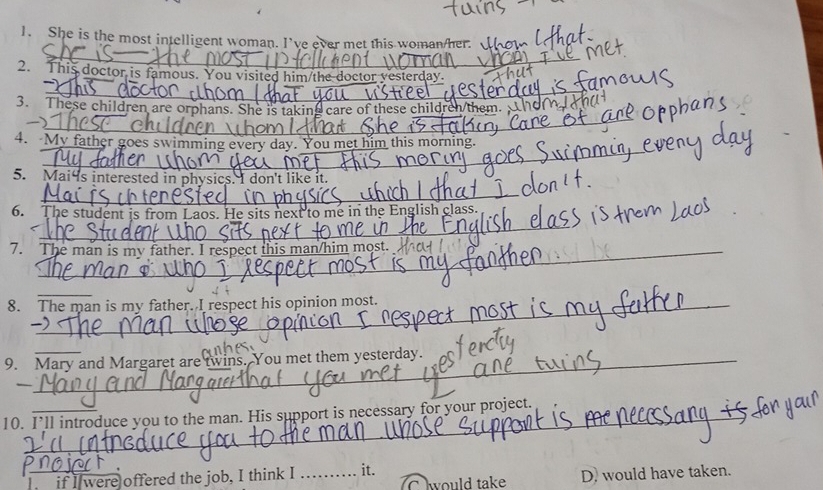 twins
1. She is the most intelligent woman. I've ever met this woman/her. whom / that.
She is the most intelligent woman whom I've met.
2. This doctor is famous. You visited him/the doctor yesterday. that
→ This doctor whom / that you visited yesterday is famous
3. These children are orphans. She is taking care of these children/them. whom / that
→ These children whom / that She is taking care of are opphans
4. My father goes swimming every day. You met him this morning.
My father whom you met this moring goes Swimming eveny day
5. Mai is interested in physics. I don't like it.
Mai is interested in physics which / that I don't.
6. The student is from Laos. He sits next to me in the English class.
The student who sits next to me in the English class is from Laos
7. The man is my father. I respect this man/him most. that
The man who I respect most is my fanther.
8. The man is my father. I respect his opinion most.
→ The man whose opinion I respect most is my father
9. Mary and Margaret are twins. You met them yesterday.
- Mary and Margaret that you met yesterday are twins
10. I'll introduce you to the man. His support is necessary for your project.
I'll introduce you to the man whose support is necessary for your
project.
1. if I were offered the job, I think I .......... it.
C would take D. would have taken.